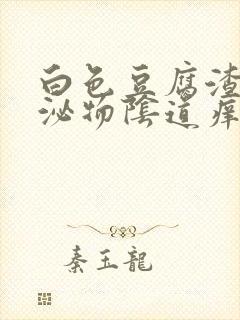 白色豆腐渣
泌物陰道癢
秦玉龍